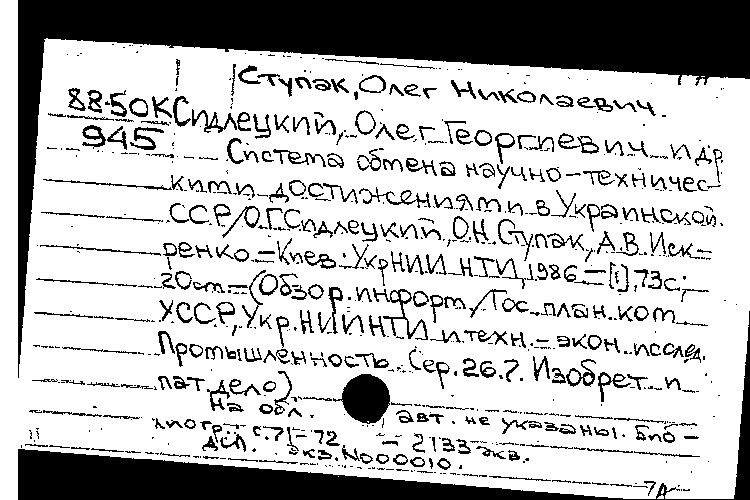 Ступак, Олег Николаевич.
88-50К Сидлецкий, Олег Георгиевич и др
945 Система обмена научно-техничес-
кими достижениями в Украинской
ССР/О.Г.Сидлецкий, О.Н.Ступак, А.В.Иск-
ренко.-Киев: УкрНИИ НТИ, 1986.-[1], 73с.;
20см.-(Обзор.информ./Гос.план.ком.
УССР, Укр.НИИНТИ и техн.-экон.исслед.
Промышленность. Сер.26.7. Изобрет. и
пат.дело)
На обл. авт. не указаны. Биб-
лиогр.: с.71-72 - 2133экв.
ДСП. экз.No00010.
7А